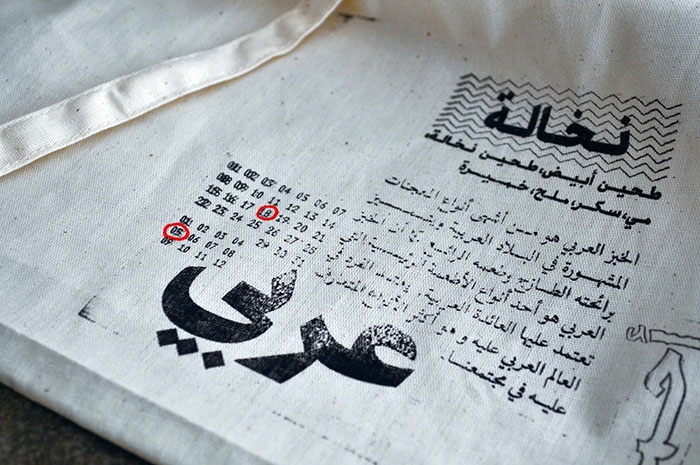 نخالة
طحين أبيض، طحين نخالة
مي، سكر، ملح، خميرة
الخبز العربي هو من أشهى أنواع المعجنات
المشهورة في البلاد العربية
برائحته الطازج وطعمه الرائع
العربي هو أحد أنواع الأطعمة الرئيسية التي
تعتمد عليها العائدة العربية
العالم العربي عليه و هو أكثر
عليه في مجتمعنا.
01 02 03 04 05 06 07
08 09 10 11 12 13 14
15 16 17 18 19 20 21
22 23 24 25 26 27 28
29 30 31
01 02 03 04
05 06 07 08
09 10 11 12
عربي